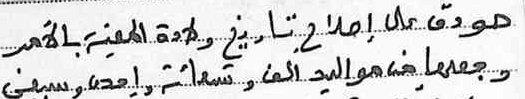 صودق على إصلاح تاريخ ولادة المعنية بالأمر
وجعلها من مواليد الف وتسعمائة واحدى وسبعين